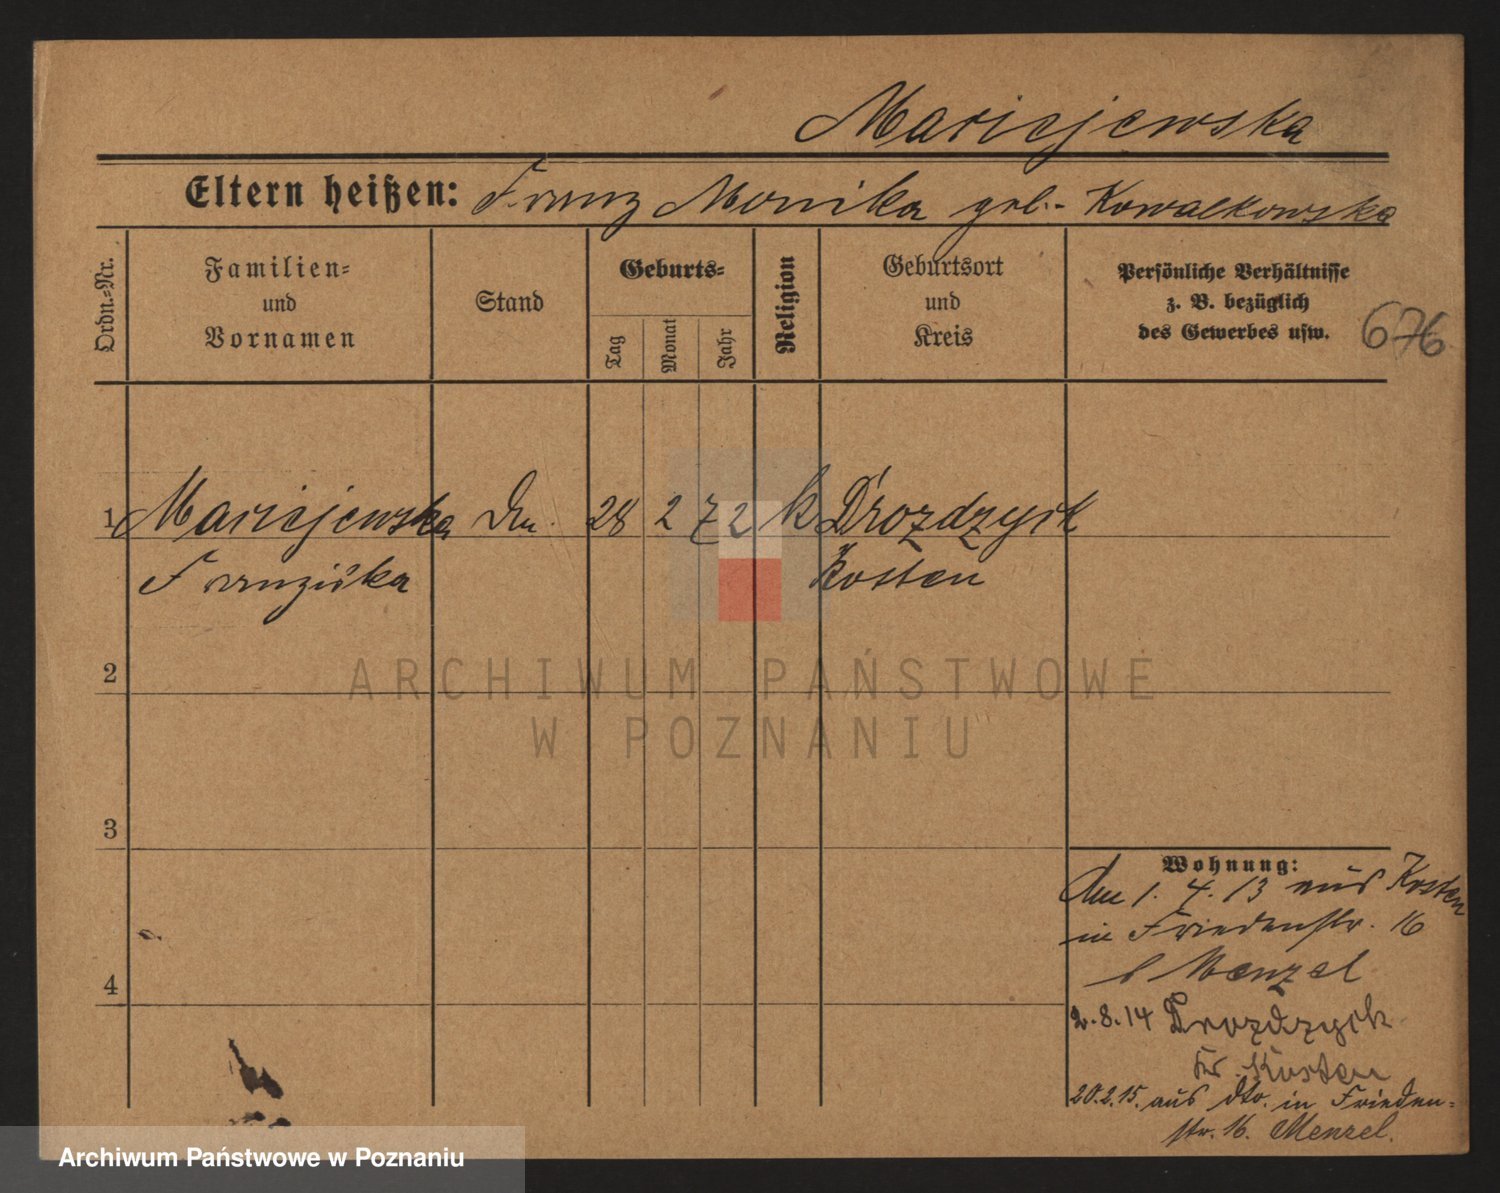 Maricjewska
Eltern heißen: Franz Monika geb. Kowalkowska
Ordn.=Nr.
Familien=
und
Vornamen
Stand
Geburts=
Tag
Monat
Jahr
Religion
Geburtsort
und
Kreis
Persönliche Verhältnisse
z. B. bezüglich
des Gewerbes usw.
676
1 Maricjewska 28 2 72 k Drozdzyck
Franziska Kosten
2
ARCHIWUM PAŃSTWOWE
W POZNANIU
3
Wohnung:
1. 4. 13 aus Kosten
in Friedenstr. 16
b Menzel
4
2.8.14 Drozdzyck
Kr. Kosten
20.2.15. aus dto. in Frieden=
str. 16. Menzel.
Archiwum Państwowe w Poznaniu